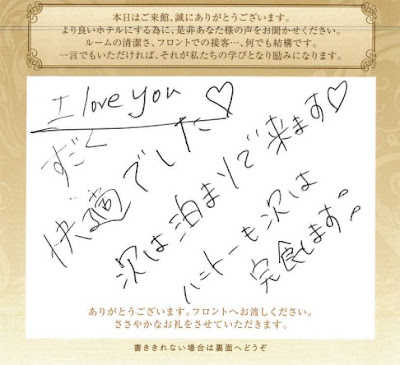 本日はご来館、誠にありがとうございます。
より良いホテルにする為に、是非あなた様の声をお聞かせください。
ルームの清潔さ、フロントでの接客…、何でも結構です。
一言でもいただければ、それが私たちの学びとなり励みになります。
I love you ♡
すごく
快適でした
次は泊まりで来ます♡
ハニトーも次は
完食します♪
ありがとうございます。フロントへお渡しください。
ささやかなお礼をさせていただきます。
書ききれない場合は裏面へどうぞ